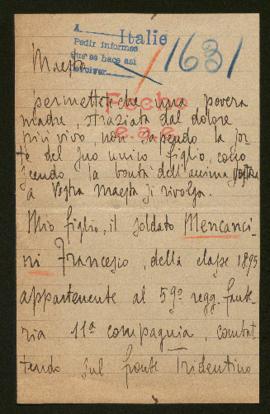 A
Italie
Pedir informes
que se hace así
devolver
1631
Maestà
Fiche
e.a.c.
permetta che una povera
madre, straziata dal dolore
più vivo, non sapendo la sor
te del suo unico figlio, cono
scendo la bontà dell'anima Vostra
a Vostra Maestà si rivolga.
Mio figlio, il soldato Mencanci
ni Francesco, della classe 1895
appartenente al 59º regg. fante
ria 11ª compagnia, combat
tendo sul fronte Tridentino